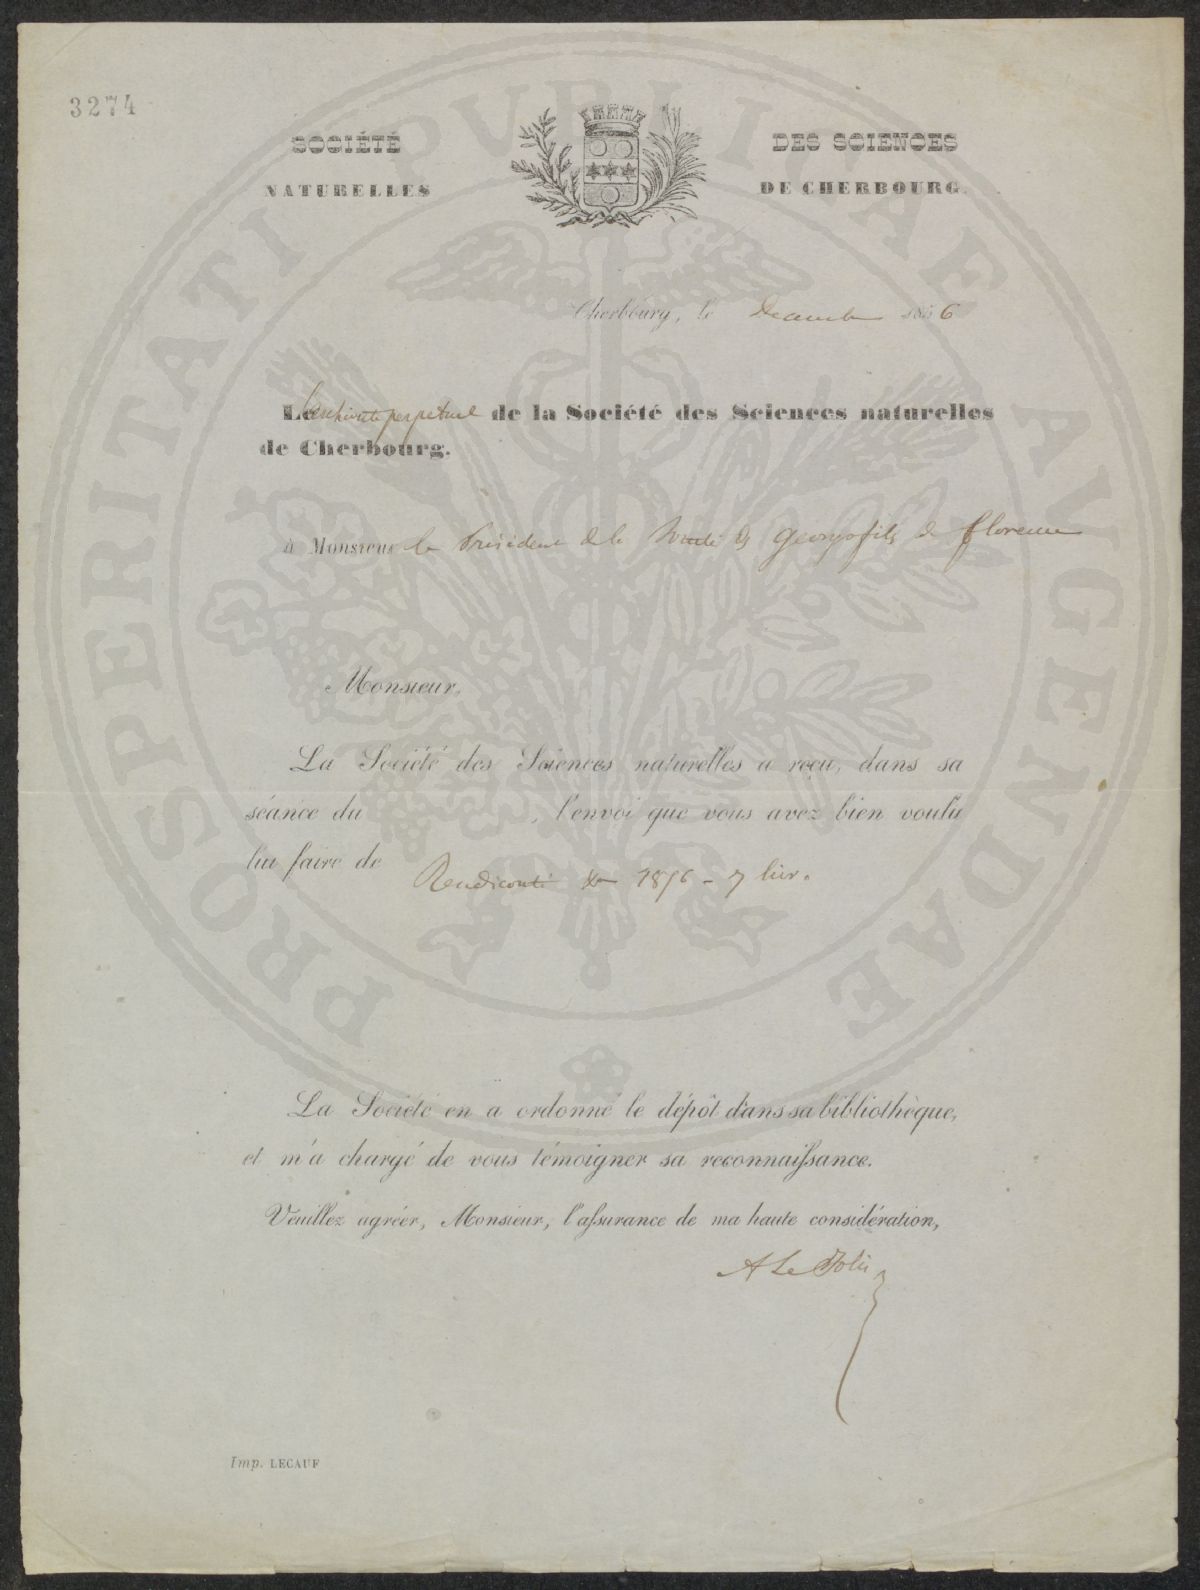 3274
SOCIÉTÉ DES SCIENCES
NATURELLES DE CHERBOURG.
Cherbourg, le Décembre 1856
Le perpétuel de la Société des Sciences naturelles
de Cherbourg.
à Monsieur le Président de la Société des Georgofiles de Florence
Monsieur,
La Société des Sciences naturelles a reçu, dans sa
séance du , l'envoi que vous avez bien voulu
lui faire de Rendiconti 1856 - 7 livr.
La Société en a ordonné le dépôt dans sa bibliothèque,
et m'a chargé de vous témoigner sa reconnaissance.
Veuillez agréer, Monsieur, l'assurance de ma haute considération,
A Le Jolis
Imp. LECAUF
PROSPERITATI PUBLICAE AVGENDAE